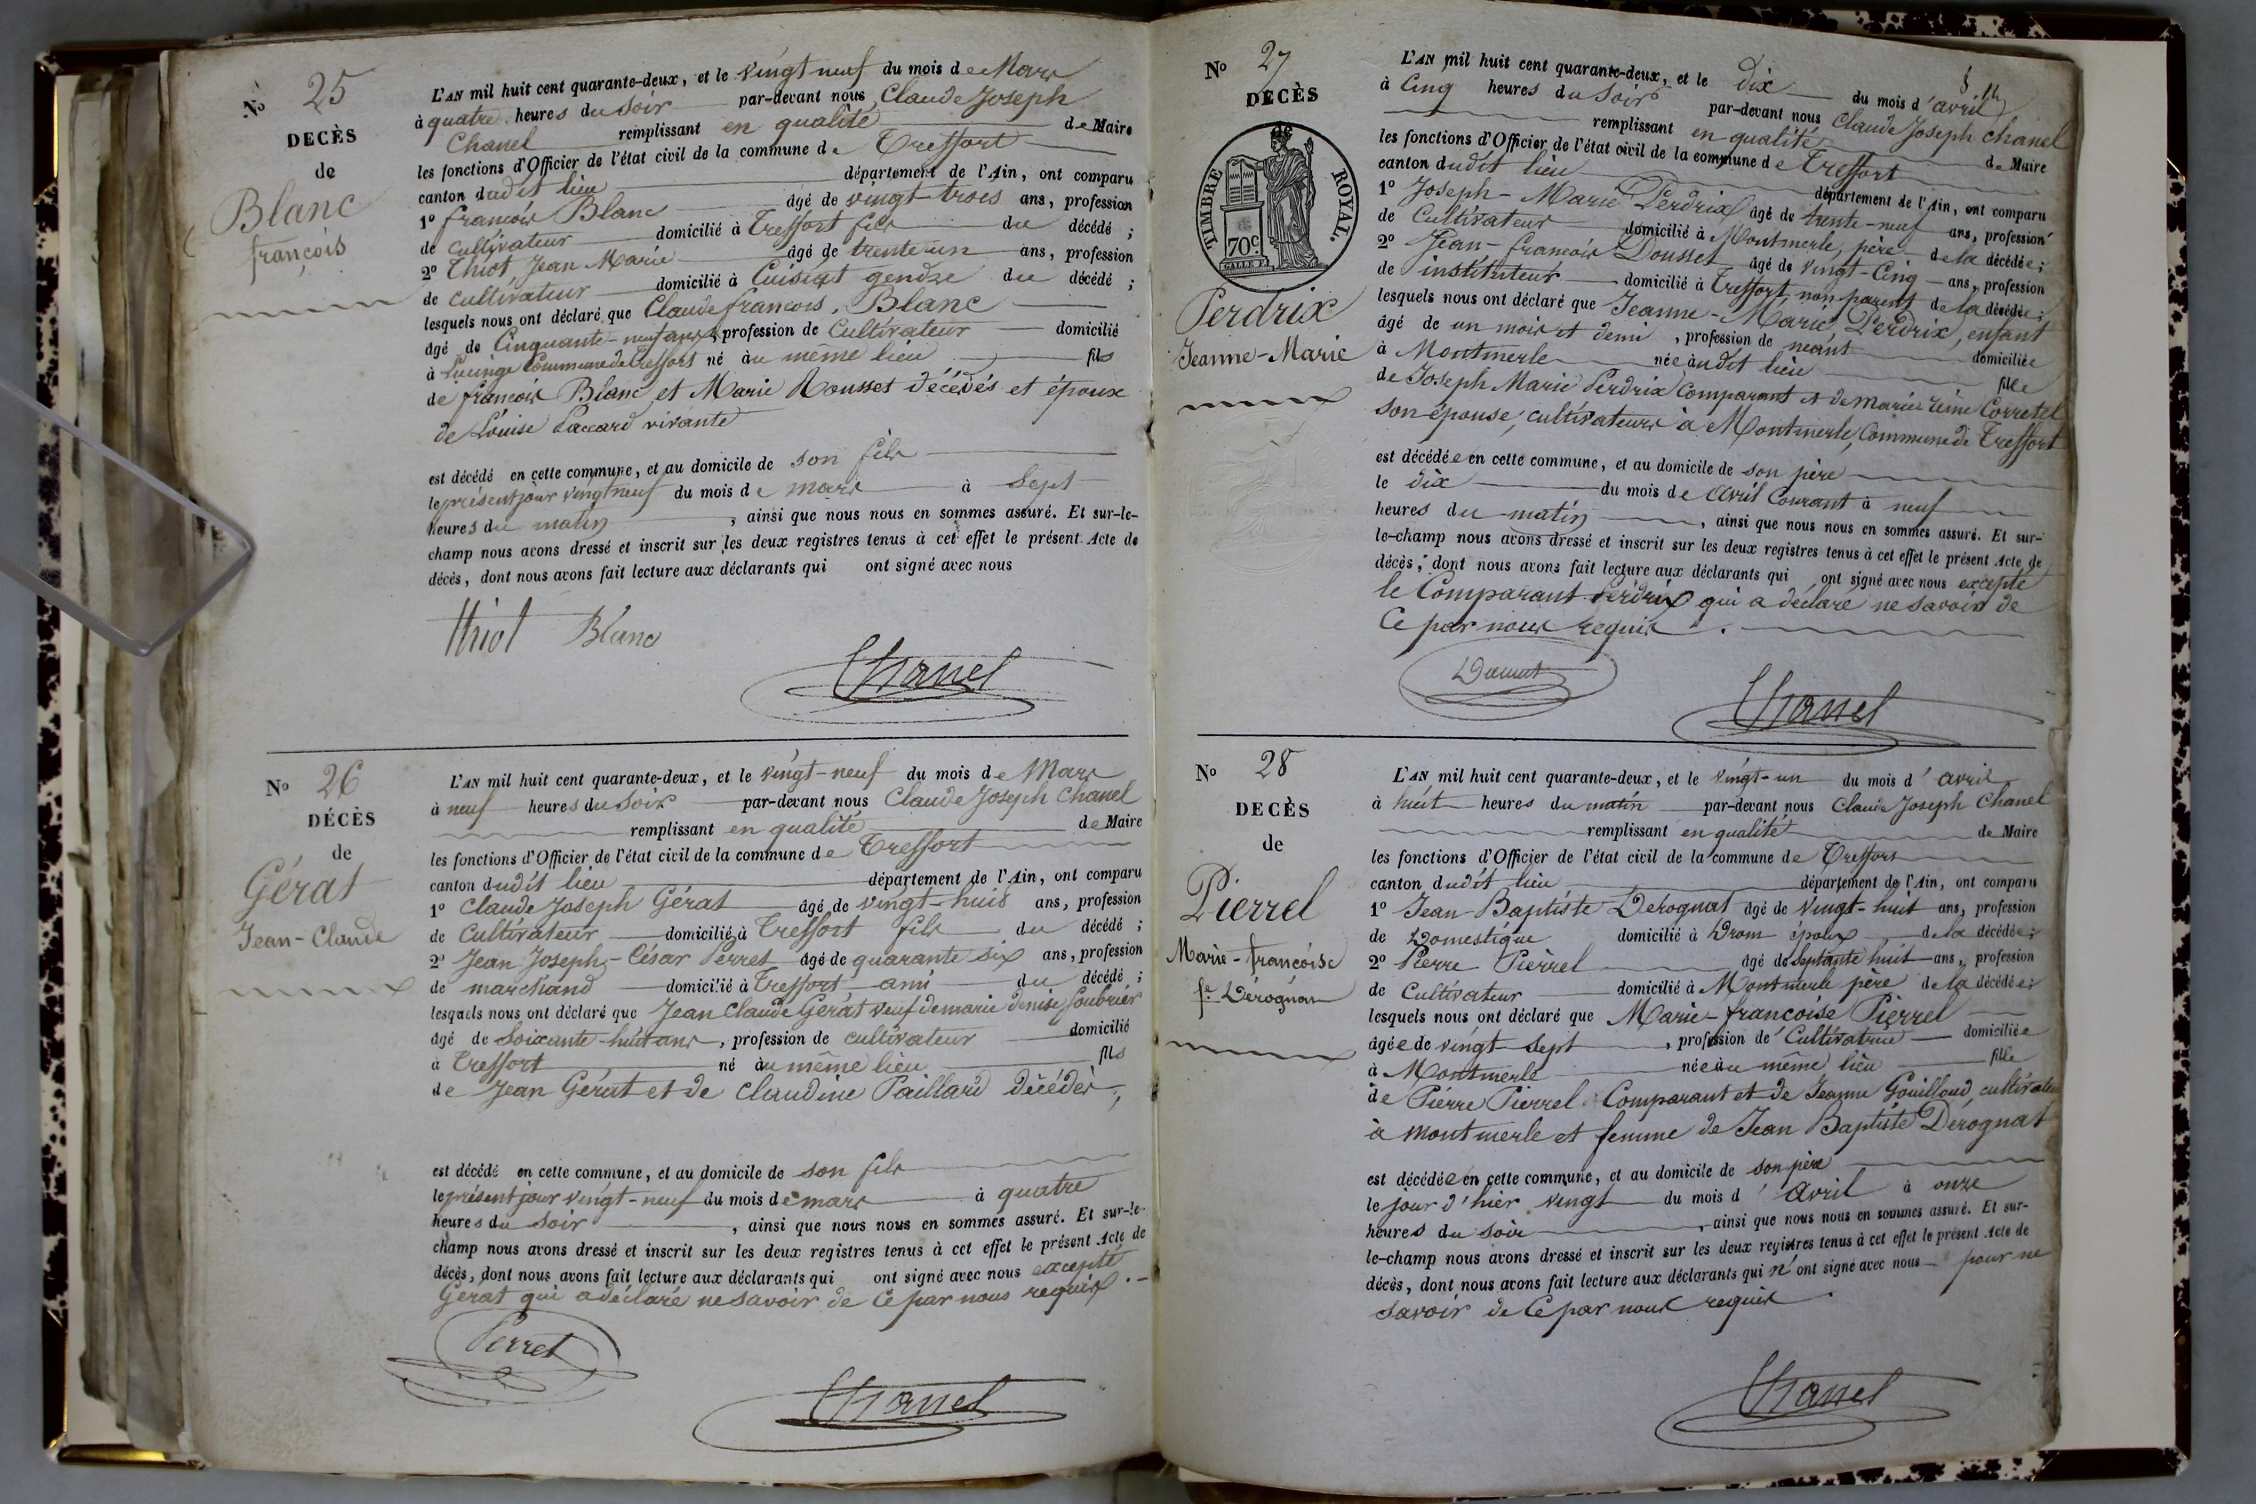 N° 25
DECÈS
de
Blanc
françois
L'AN mil huit cent quarante-deux, et le vingt neuf du mois de Mars
à quatre heures du soir par-devant nous Claude Joseph
Chanel remplissant en qualité de Maire
les fonctions d'Officier de l'état civil de la commune de Treffort
canton dudit lieu département de l'Ain, ont comparu
1° françois Blanc âgé de vingt trois ans, profession
de cultivateur domicilié à Treffort fils du décédé ;
2° Thiot Jean Marie âgé de trente un ans, profession
de cultivateur domicilié à Cuisiat gendre du décédé ;
lesquels nous ont déclaré que Claude françois Blanc
âgé de Cinquante-neuf ans, profession de Cultivateur domicilié
à Lucinge Commune de Treffort né au même lieu fils
de françois Blanc et Marie Rousset décédés et époux
de Louise Paccard vivante
est décédé en cette commune, et au domicile de son fils
le présent jour vingt neuf du mois de mars à Sept
heures du matin, ainsi que nous nous en sommes assuré. Et sur-le-
champ nous avons dressé et inscrit sur les deux registres tenus à cet effet le présent Acte de
décès, dont nous avons fait lecture aux déclarants qui ont signé avec nous
Thiot Blanc
Chanel
N° 26
DÉCÈS
de
Gérat
Jean-Claude
L'AN mil huit cent quarante-deux, et le vingt-neuf du mois de Mars
à neuf heures du soir par-devant nous Claude Joseph Chanel
remplissant en qualité de Maire
les fonctions d'Officier de l'état civil de la commune de Treffort
canton dudit lieu département de l'Ain, ont comparu
1° Claude Joseph Gérat âgé de vingt-huit ans, profession
de Cultivateur domicilié à Treffort fils du décédé ;
2° Jean Joseph-César Perret âgé de quarante six ans, profession
de marchand domicilié à Treffort ami du décédé ;
lesquels nous ont déclaré que Jean Claude Gérat veuf de marie denise Soubrier
âgé de Soixante-huit ans, profession de cultivateur domicilié
à Treffort né au même lieu fils
de Jean Gérat et de Claudine Paillard décédés,
est décédé en cette commune, et au domicile de son fils
le présent jour vingt-neuf du mois de mars à quatre
heures du soir, ainsi que nous nous en sommes assuré. Et sur-le-
champ nous avons dressé et inscrit sur les deux registres tenus à cet effet le présent Acte de
décès, dont nous avons fait lecture aux déclarants qui ont signé avec nous excepté
Gérat qui a déclaré ne savoir de Ce par nous requis.
Perret
Chanel
N° 27
DECÈS
TIMBRE ROYAL.
70c
Perdrix
Jeanne-Marie
L'AN mil huit cent quarante-deux, et le Dix du mois d'avril
à Cinq heures du Soir par-devant nous Claude Joseph Chanel
remplissant en qualité de Maire
les fonctions d'Officier de l'état civil de la commune de Treffort
canton dudit lieu département de l'Ain, ont comparu
1° Joseph-Marie Perdrix âgé de trente-neuf ans, profession
de Cultivateur domicilié à Montmerle, père de la décédée ;
2° Jean-françois Dousset âgé de vingt-Cinq ans, profession
de instituteur domicilié à Treffort, non parent de la décédée ;
lesquels nous ont déclaré que Jeanne-Marie Perdrix, enfant
âgé de un mois et demi, profession de néant domiciliée
à Montmerle née au dit lieu fille
de Joseph Marie Perdrix Comparant et de marie reine Corretel
son épouse, cultivateurs à Montmerle, Commune de Treffort
est décédée en cette commune, et au domicile de son père
le dix du mois de avril Courant à neuf
heures du matin, ainsi que nous nous en sommes assuré. Et sur-
le-champ nous avons dressé et inscrit sur les deux registres tenus à cet effet le présent Acte de
décès, dont nous avons fait lecture aux déclarants qui ont signé avec nous excepté
le Comparant Perdrix qui a déclaré ne savoir de
Ce par nous requis.
Chanel
N° 28
DECÈS
de
Pierrel
Marie-françoise
fe Dérognat
L'AN mil huit cent quarante-deux, et le vingt-un du mois d'avril
à huit heures du matin par-devant nous Claude Joseph Chanel
remplissant en qualité de Maire
les fonctions d'Officier de l'état civil de la commune de Treffort
canton dudit lieu département de l'Ain, ont comparu
1° Jean-Baptiste Derognat âgé de vingt-huit ans, profession
de Domestique domicilié à Drom époux de la décédée ;
2° Pierre Pierrel âgé de septante huit ans, profession
de Cultivateur domicilié à Montmerle père de la décédée ;
lesquels nous ont déclaré que Marie-françoise Pierrel
âgée de vingt sept, profession de Cultivatrice domiciliée
à Montmerle née au même lieu fille
de Pierre Pierrel Comparant et de Jeanne Gouilloud, cultivateurs
à Montmerle et femme de Jean Baptiste Dérognat
est décédée en cette commune, et au domicile de son père
le jour d'hier vingt du mois d'avril à onze
heures du soir, ainsi que nous nous en sommes assuré. Et sur-
le-champ nous avons dressé et inscrit sur les deux registres tenus à cet effet le présent Acte de
décès, dont nous avons fait lecture aux déclarants qui n'ont signé avec nous pour ne
savoir de Ce par nous requis.
Chanel